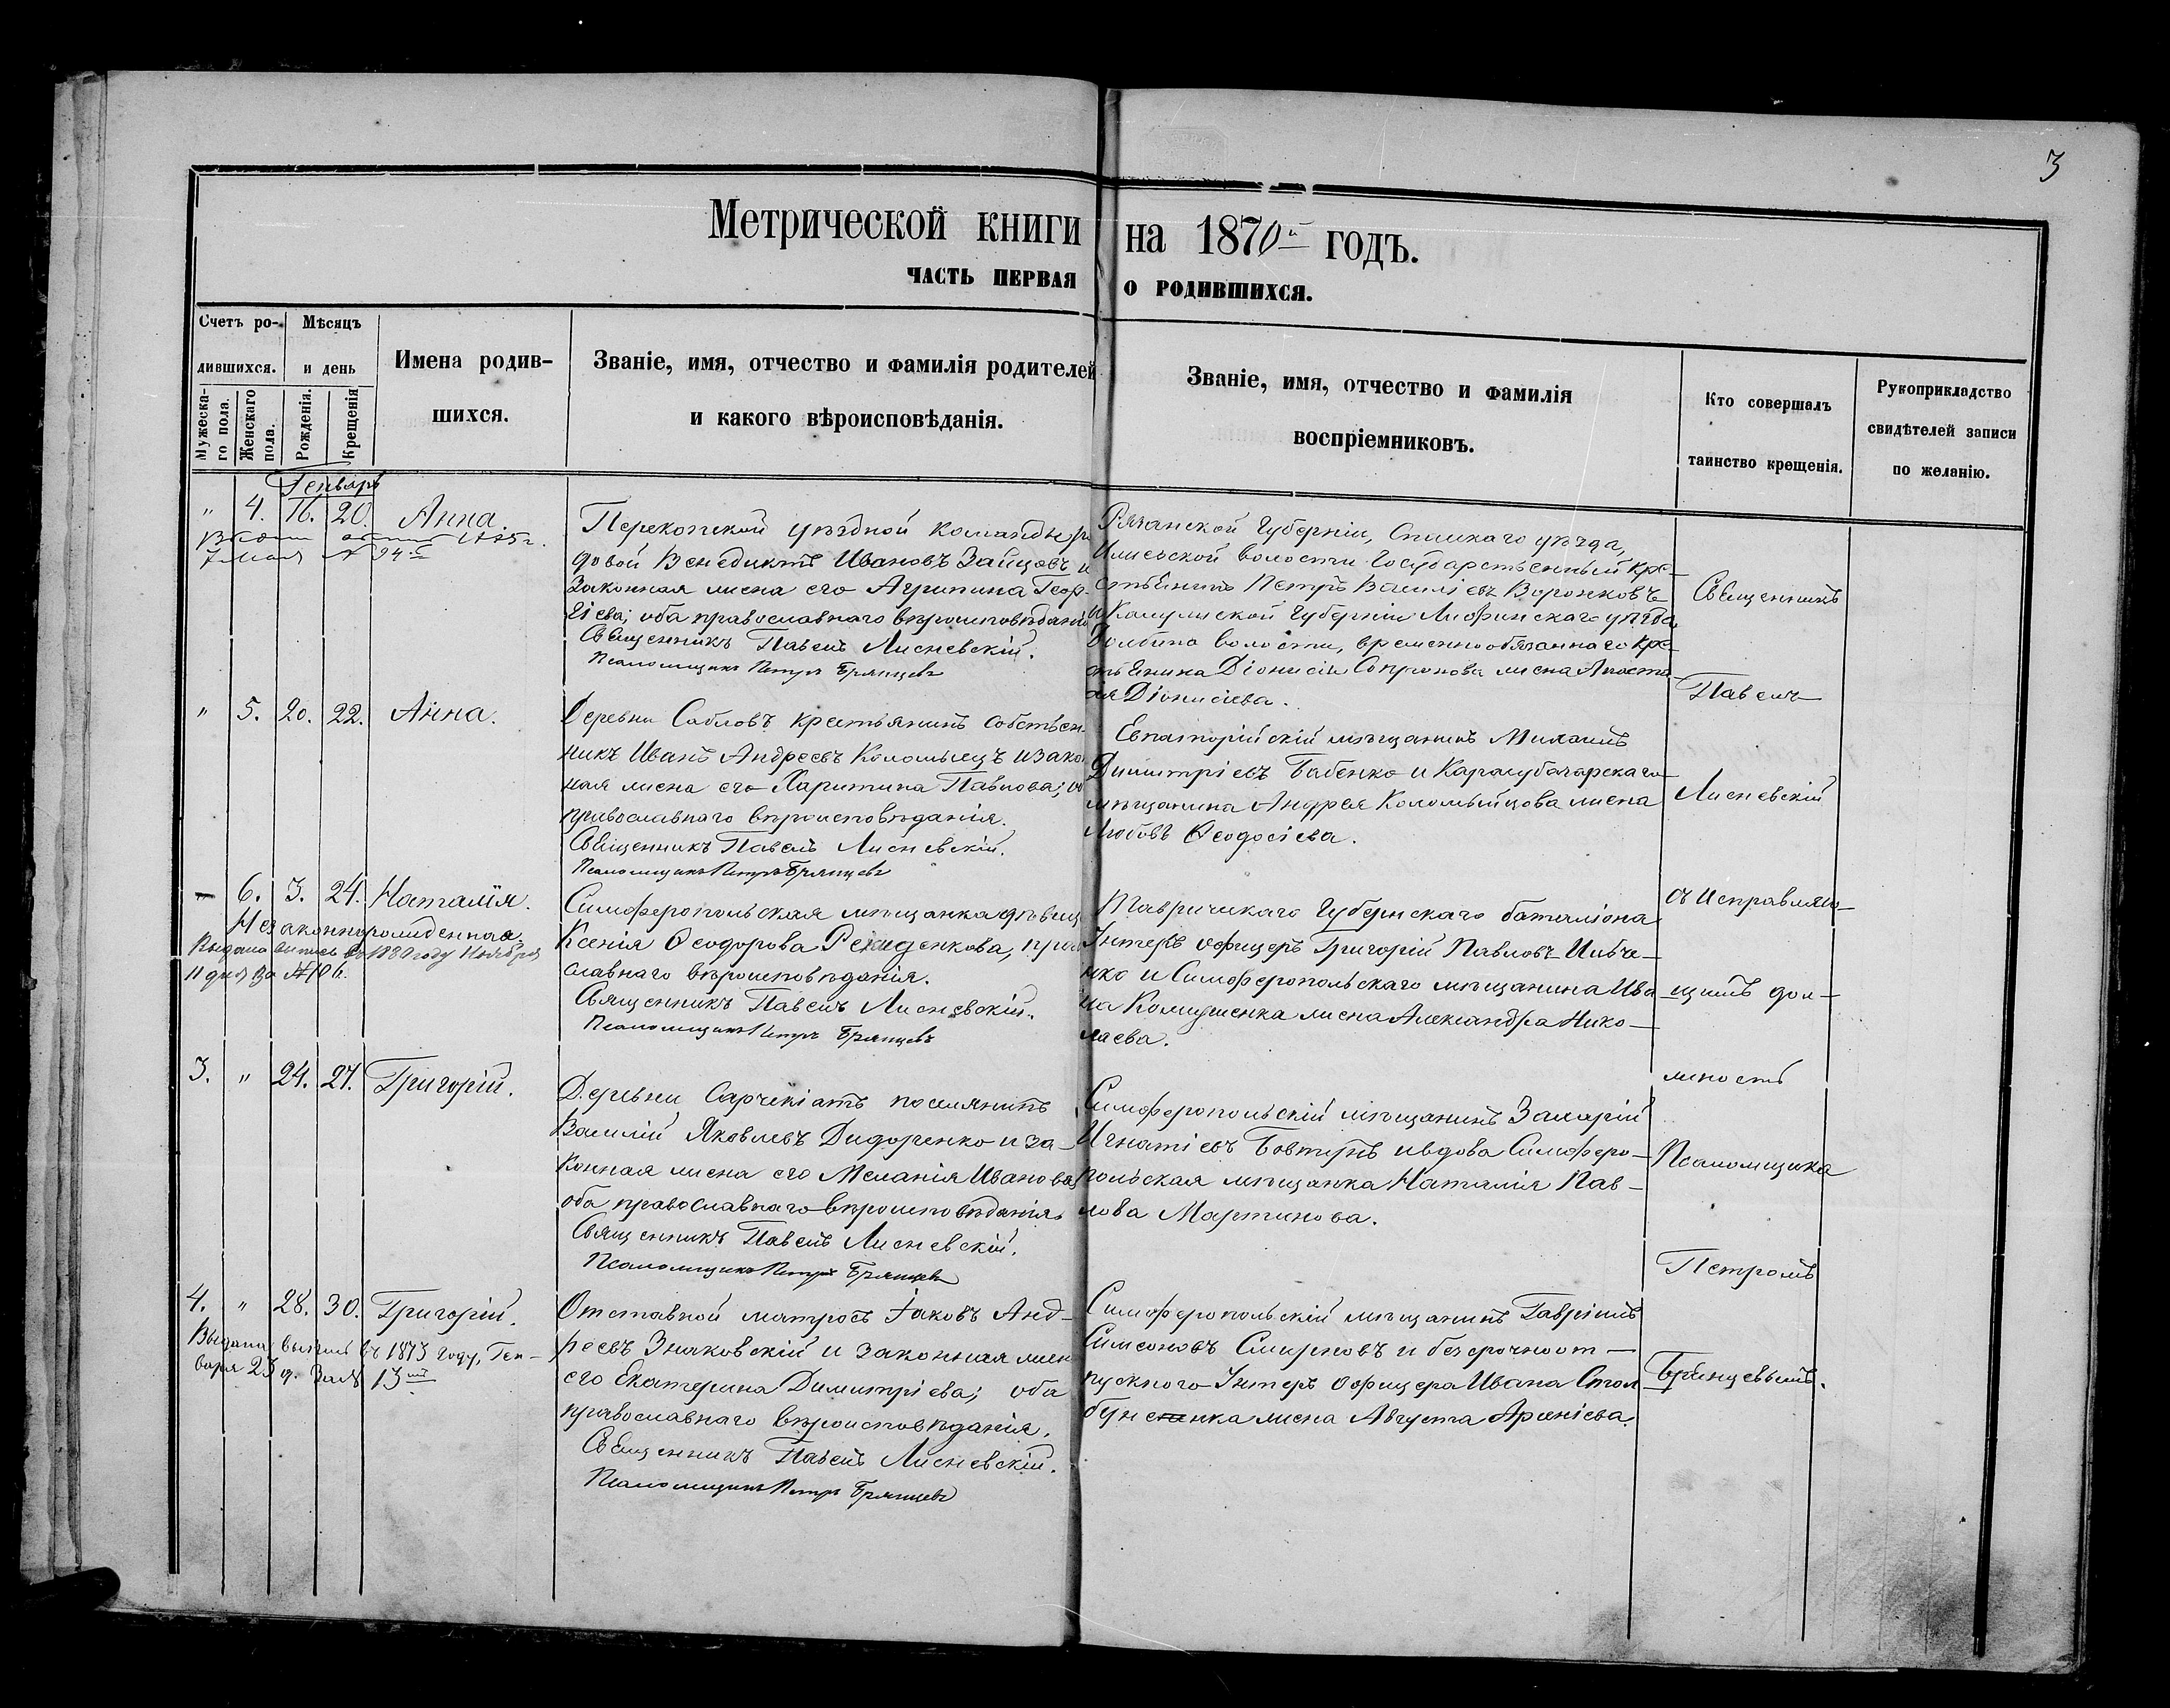 3
Метрической книги на 1870й годъ.
ЧАСТЬ ПЕРВАЯ О РОДИВШИХСЯ.
Счетъ ро-
дившихся.
Мужеска-
го пола.
Женскаго
пола.
Мѣсяцъ
и день
Рожденія.
Крещенія
Имена родив-
шихся.
Званіе, имя, отчество и фамилія родителей
и какого вѣроисповѣданія.
Званіе, имя, отчество и фамилія
воспріемниковъ.
Кто совершалъ
таинство крещенія.
Рукоприкладство
свидѣтелей записи
по желанію.
Генварь
" 4. 16. 20. Анна.
7 Мая № 94
Перекопской уѣздной команды ря
довой Венедиктъ Ивановъ Зайцовъ и
законная жена его Агрипина Геор-
гіева; оба православнаго вѣроисповѣданія
Священникъ Павелъ Лисневскій.
Псаломщикъ Петръ Брянцевъ
Рязанской Губерніи, уѣзда,
волости Государственный кре-
стьянинъ Петръ Василіевъ Воронковъ
и Калужской Губерніи уѣзда
волости, временнообязаннаго кре-
стьянина Діонисія Сопронова жена Анаста
сія Діонисіева.
" 5. 20. 22. Анна.
Деревни Сабловъ крестьянинъ собствен-
никъ Иванъ Андреевъ Коломыецъ и закон
ная жена его Харитина Павлова; об
православнаго вѣроисповѣданія.
Священникъ Павелъ Лисневскій.
Псаломщикъ Петръ Брянцевъ
Евпаторійскій мѣщанинъ Михаилъ
Димитріевъ Бабенко и Карасубазарскаго
мѣщанина Андрея Коломыйцова жена
Любовь Ѳеодосіева.
- 6. 3. 24. Наталія.
Незаконнорожденная
Выдана выпись въ 1880 году Ноября
11 дня за № 106.
Симферопольская мѣщанка дѣвица
Ксенія Ѳеодорова, право
славнаго вѣроисповѣданія.
Священникъ Павелъ Лисневскій.
Псаломщикъ Петръ Брянцевъ
Таврическаго Губернскаго баталіона
Унтеръ офицеръ Григорій Павловъ Ивче-
нко и Симферопольскаго мѣщанина Ива
на жена Александра Нико-
лаева.
3. " 24. 27. Григорій.
Деревни Сарчекіатъ поселянинъ
Василій Яковлевъ Дидоренко и за-
конная жена его Меланія Иванова
оба православнаго вѣроисповѣданія.
Священникъ Павелъ Лисневскій.
Псаломщикъ Петръ Брянцевъ
Симферопольскій мѣщанинъ Захарій
Игнатіевъ Бовтунъ и вдова Симферо-
польская мѣщанка Наталія Пав-
лова Мартинова.
4. " 28. 30. Григорій.
Выдана выпись въ 1873 году, Ген-
варя 23 д. за № 13
Отставной матросъ Іаковъ Анд-
реевъ Знаковскій и законная жен
его Екатерина Димитріева; оба
православнаго вѣроисповѣданія.
Священникъ Павелъ Лисневскій.
Псаломщикъ Петръ Брянцевъ
Симферопольскій мѣщанинъ Гавріилъ
Симеоновъ Смирновъ и безсрочноот-
пускного Унтеръ офицера Ивана Стол
буненка жена Августа Арсеніева.
Священникъ
Павелъ
Лисневскій
съ исправляю-
щимъ дол-
жность
Псаломщика
Петромъ
Брянцевымъ.